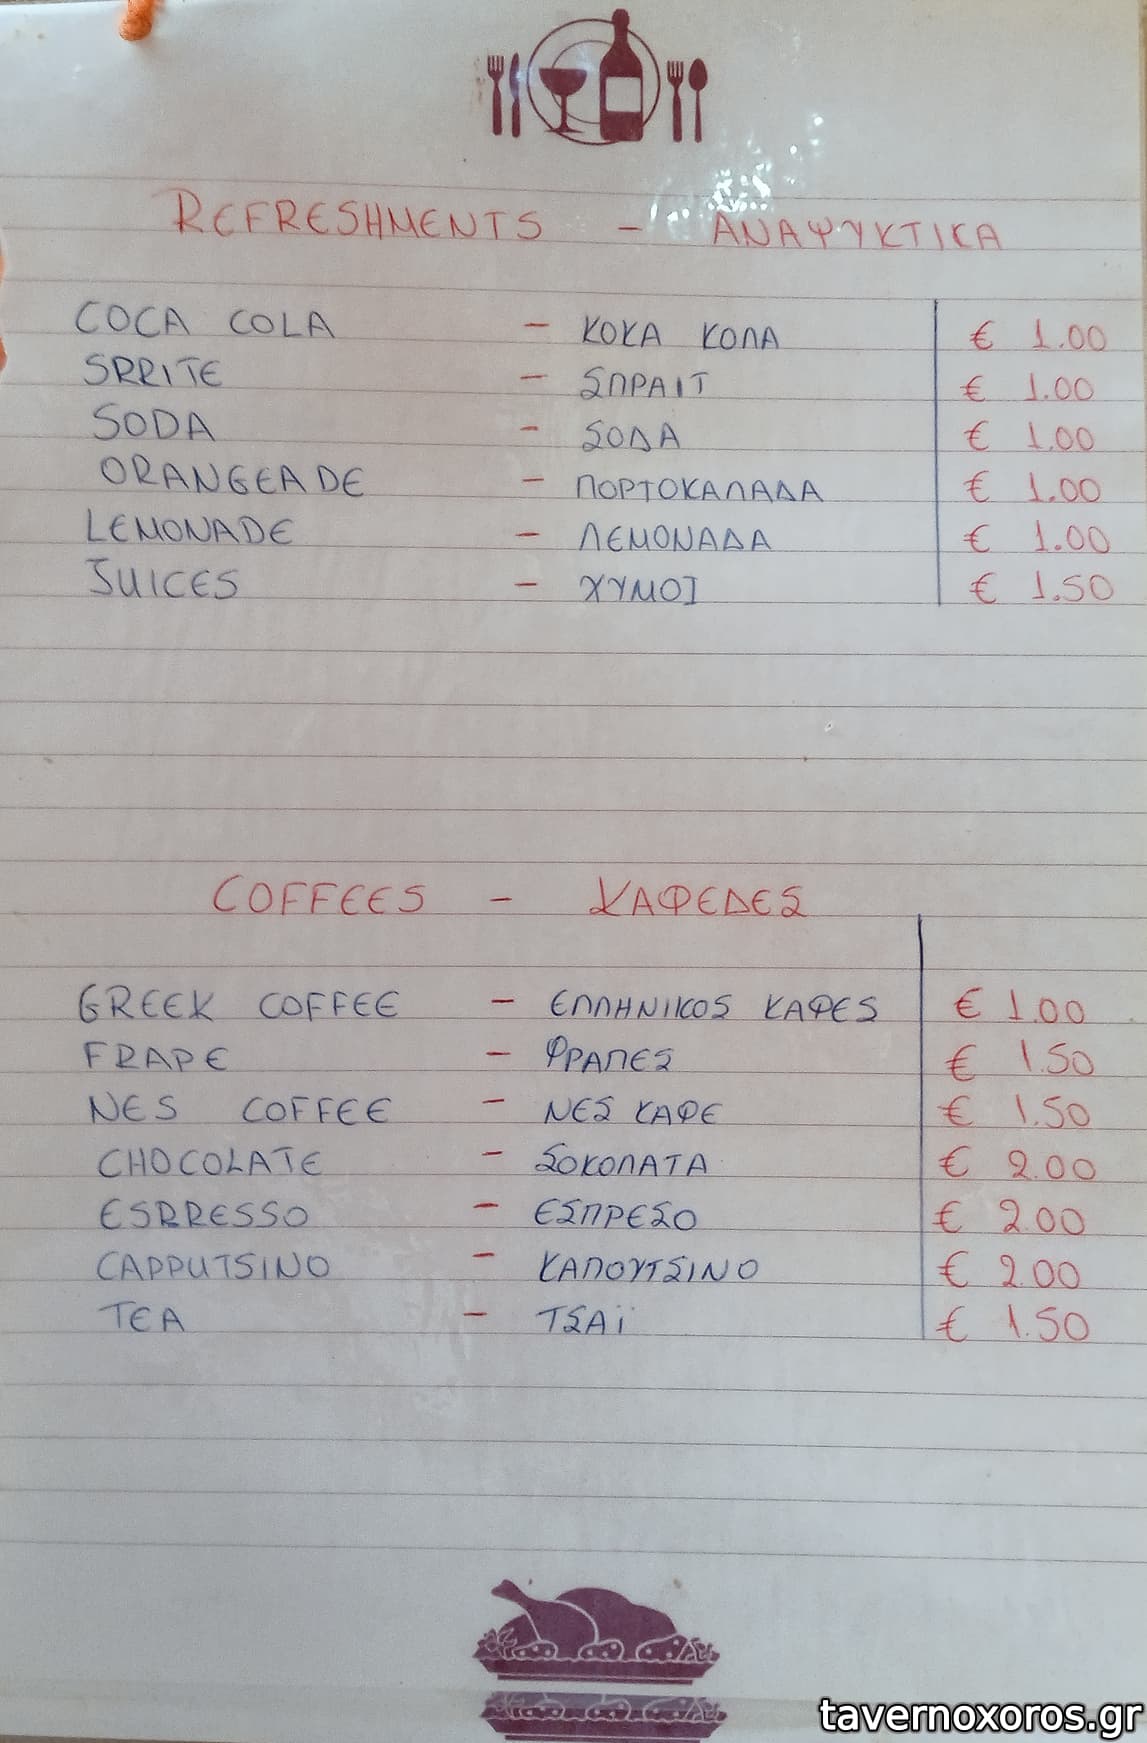 REFRESHMENTS - ΑΝΑΨΥΚΤΙΚΑ
COCA COLA - ΚΟΚΑ ΚΟΛΑ € 1.00
SRRITE - ΣΠΡΑΙΤ € 1.00
SODA - ΣΟΔΑ € 1.00
ORANGEADE - ΠΟΡΤΟΚΑΛΑΔΑ € 1.00
LEMONADE - ΛΕΜΟΝΑΔΑ € 1.00
JUICES - ΧΥΜΟΙ € 1.50
COFFEES - ΚΑΦΕΔΕΣ
GREEK COFFEE - ΕΛΛΗΝΙΚΟΣ ΚΑΦΕΣ € 1.00
FRAPE - ΦΡΑΠΕΣ € 1.50
NES COFFEE - ΝΕΣ ΚΑΦΕ € 1.50
CHOCOLATE - ΣΟΚΟΛΑΤΑ € 2.00
ESRRESSO - ΕΣΠΡΕΣΟ € 2.00
CAPPUTSINO - ΚΑΠΟΥΤΣΙΝΟ € 2.00
TEA - ΤΣΑΪ € 1.50
tavernoxoros.gr